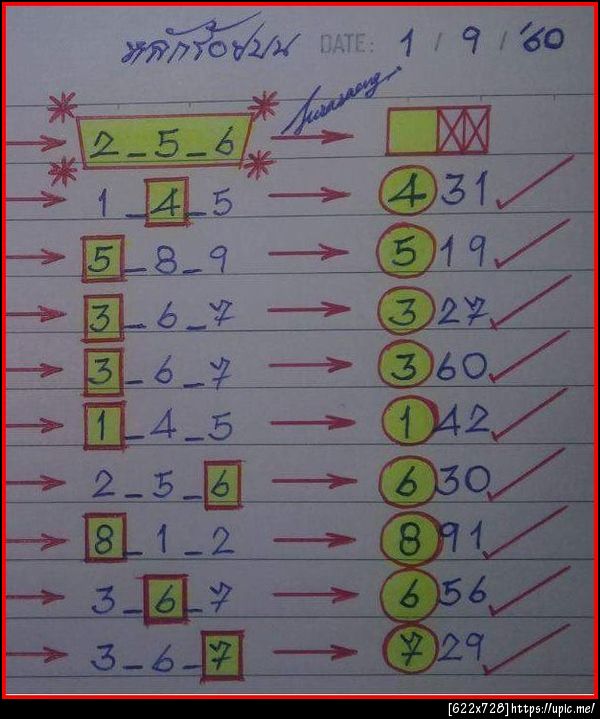 หลักร้อยบน DATE: 1 / 9 / '60
2_5_6
1_4_5 431
5_8_9 519
3_6_7 327
3_6_7 360
1_4_5 142
2_5_6 630
8_1_2 891
3_6_7 656
3_6_7 729
[622x728]https://upic.me/